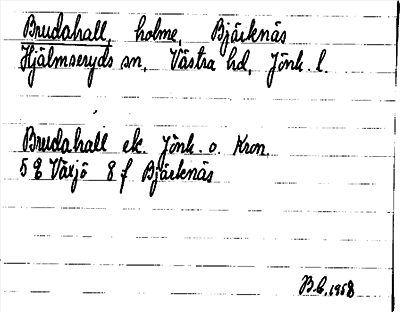 Brudahall, holme, Bjärknäs
Hjälmseryds sn, Västra hd, Jönk. l.
Brudahall ek. Jönk. o. Kron.
5 g Växjö 8 f Bjärknäs
B.C. 1958